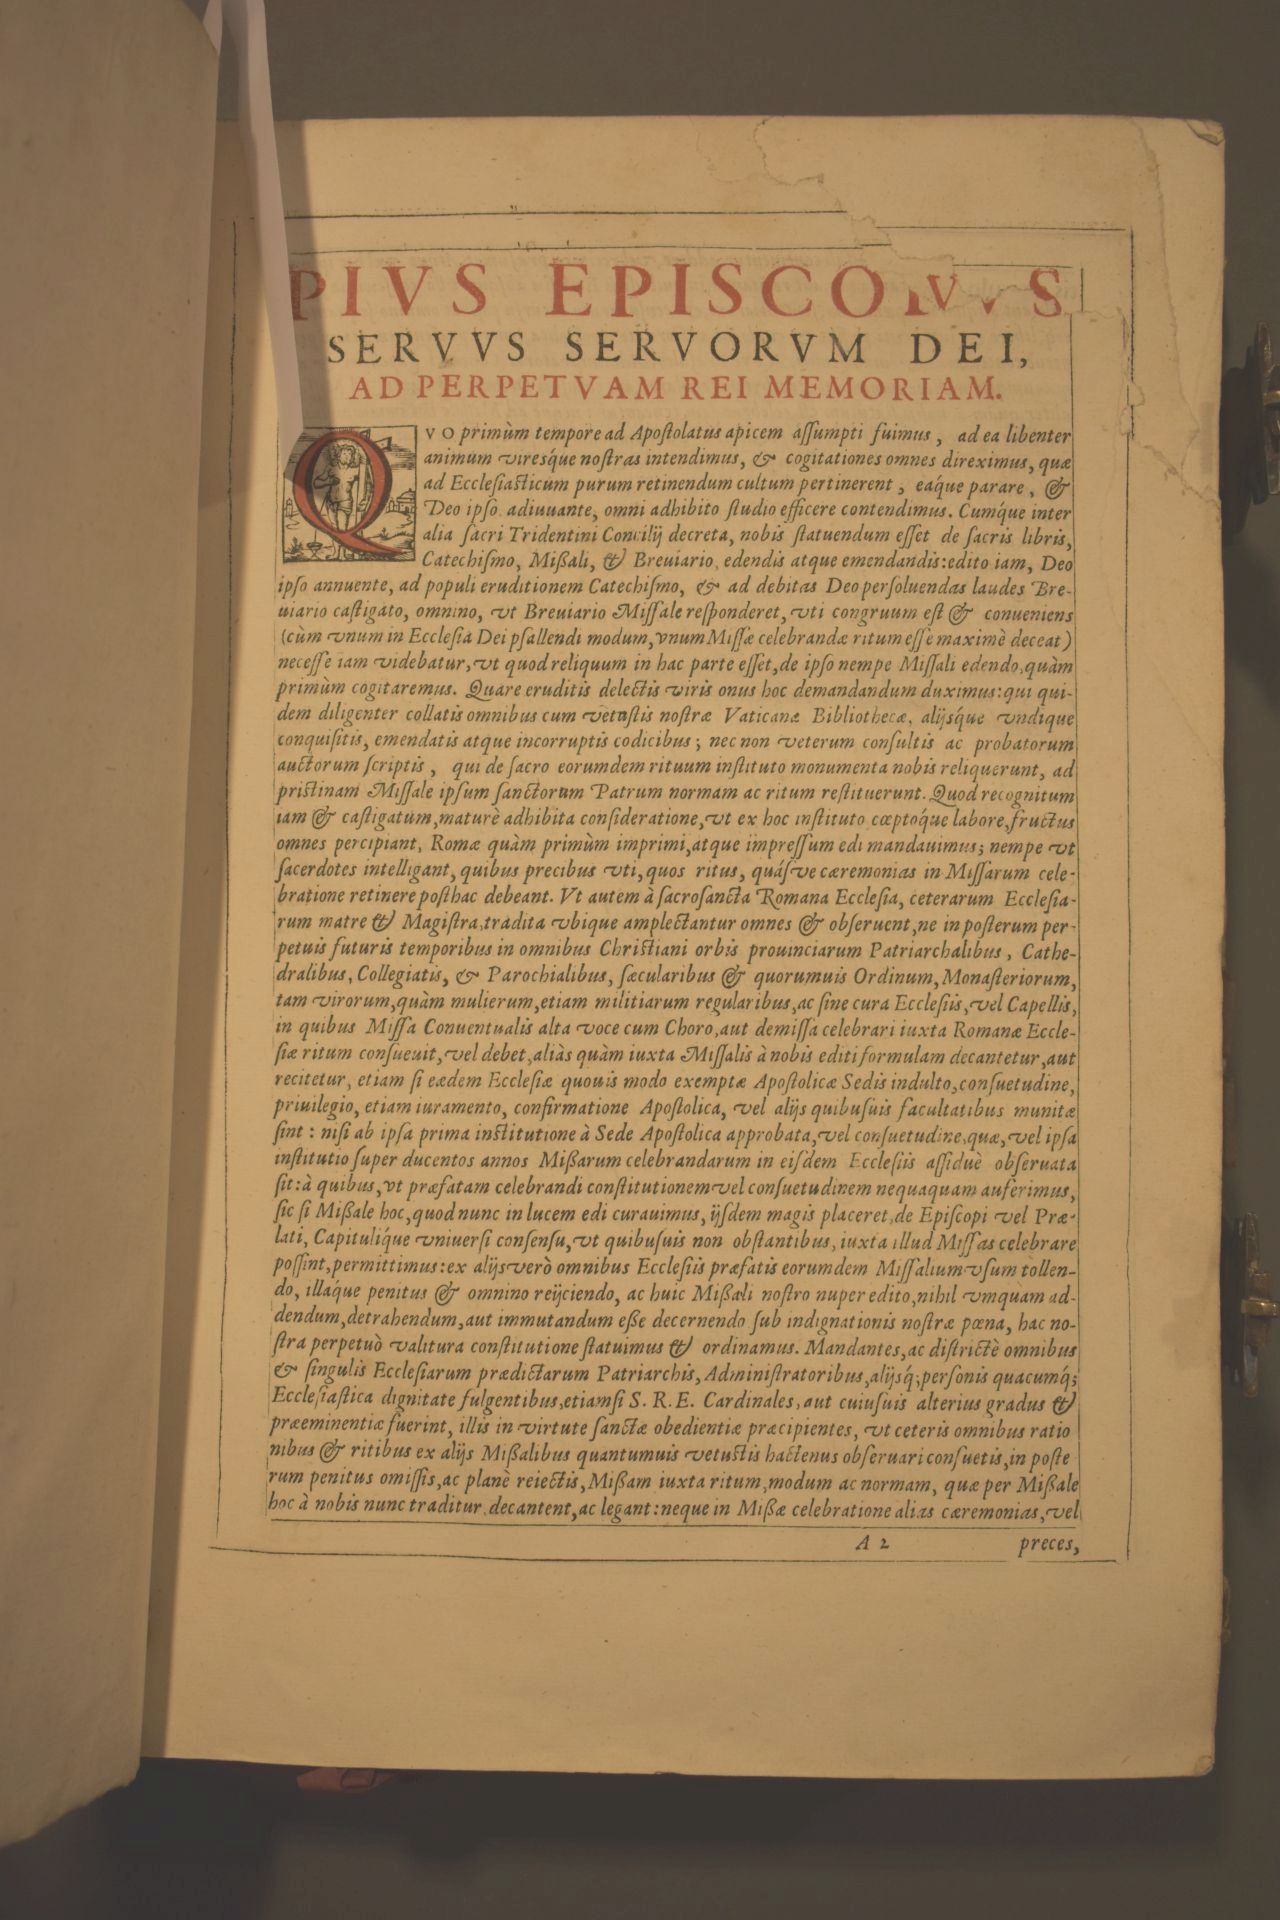 PIVS EPISCOPVS
SERVVS SERVORVM DEI,
AD PERPETVAM REI MEMORIAM.
QVO primùm tempore ad Apoſtolatus apicem aſſumpti fuimus, ad ea libenter
animum vireſq́ue noſtras intendimus, & cogitationes omnes direximus, quæ
ad Eccleſiaſticum purum retinendum cultum pertinerent, eaq́ue parare, &
Deo ipſo adiuuante, omni adhibito ſtudio efficere contendimus. Cumq́ue inter
alia ſacri Tridentini Concilij decreta, nobis ſtatuendum eſſet de ſacris libris,
Catechiſmo, Miſſali, & Breuiario, edendis atque emendandis: edito iam, Deo
ipſo annuente, ad populi eruditionem Catechiſmo, & ad debitas Deo perſoluendas laudes Bre-
uiario caſtigato, omnino, vt Breuiario Miſſale reſponderet, vti congruum eſt & conueniens
(cùm vnum in Eccleſia Dei pſallendi modum, vnum Miſſæ celebrandæ ritum eſſe maximè deceat)
neceſſe iam videbatur, vt quod reliquum in hac parte eſſet, de ipſo nempe Miſſali edendo, quàm
primùm cogitaremus. Quare eruditis delectis viris onus hoc demandandum duximus: qui qui-
dem diligenter collatis omnibus cum vetuſtis noſtræ Vaticanæ Bibliothecæ, alijſq́ue vndique
conquiſitis, emendatis atque incorruptis codicibus; nec non veterum conſultis ac probatorum
auctorum ſcriptis, qui de ſacro eorumdem rituum inſtituto monumenta nobis reliquerunt, ad
priſtinam Miſſale ipſum ſanctorum Patrum normam ac ritum reſtituerunt. Quod recognitum
iam & caſtigatum, maturè adhibita conſideratione, vt ex hoc inſtituto, cœptoq́ue labore, fructus
omnes percipiant, Romæ quàm primùm imprimi, atque impreſſum edi mandauimus; nempe vt
ſacerdotes intelligant, quibus precibus vti, quos ritus, quáſve cæremonias in Miſſarum cele-
bratione retinere poſthac debeant. Vt autem à ſacroſancta Romana Eccleſia, ceterarum Eccleſia-
rum matre & Magiſtra, tradita vbique amplectantur omnes & obſeruent, ne in poſterum per-
petuis futuris temporibus in omnibus Chriſtiani orbis prouinciarum Patriarchalibus, Cathe-
dralibus, Collegiatis, & Parochialibus, ſæcularibus & quorumuis Ordinum, Monaſteriorum,
tam virorum, quàm mulierum, etiam militiarum regularibus, ac ſine cura Eccleſiis, vel Capellis,
in quibus Miſſa Conuentualis alta voce cum Choro, aut demiſſa celebrari iuxta Romanæ Eccle-
ſiæ ritum conſueuit, vel debet, aliàs quàm iuxta Miſſalis à nobis editi formulam decantetur, aut
recitetur, etiam ſi eædem Eccleſiæ quouis modo exemptæ Apoſtolicæ Sedis indulto, conſuetudine,
priuilegio, etiam iuramento, confirmatione Apoſtolica, vel alijs quibuſuis facultatibus munitæ
ſint: niſi ab ipſa prima inſtitutione à Sede Apoſtolica approbata, vel conſuetudine, quæ, vel ipſa
inſtitutio ſuper ducentos annos Miſſarum celebrandarum in eiſdem Eccleſiis aſſiduè obſeruata
ſit: à quibus, vt præfatam celebrandi conſtitutionem vel conſuetudinem nequaquam auferimus,
ſic ſi Miſſale hoc, quod nunc in lucem edi curauimus, ijſdem magis placeret, de Epiſcopi vel Præ-
lati, Capituliq́ue vniuerſi conſenſu, vt quibuſuis non obſtantibus, iuxta illud Miſſas celebrare
poſſint, permittimus: ex alijs verò omnibus Eccleſiis præfatis eorumdem Miſſalium vſum tollen-
do, illáque penitus & omnino reijciendo, ac huic Miſſali noſtro nuper edito, nihil vmquam ad-
dendum, detrahendum, aut immutandum eſſe decernendo ſub indignationis noſtræ pœna, hac no-
ſtra perpetuò valitura conſtitutione ſtatuimus & ordinamus. Mandantes, ac diſtrictè omnibus
& ſingulis Eccleſiarum prædictarum Patriarchis, Adminiſtratoribus, alijſq́; perſonis quacumq́;
Eccleſiaſtica dignitate fulgentibus, etiamſi S. R. E. Cardinales, aut cuiuſuis alterius gradus &
præeminentiæ fuerint, illis in virtute ſanctæ obedientiæ præcipientes, vt ceteris omnibus ratio
nibus & ritibus ex alijs Miſſalibus quantumuis vetuſtis hactenus obſeruari conſuetis, in poſte
rum penitus omiſſis, ac planè reiectis, Miſſam iuxta ritum, modum ac normam, quæ per Miſſale
hoc à nobis nunc traditur, decantent, ac legant: neque in Miſſæ celebratione alias cæremonias, vel
A 2 preces,